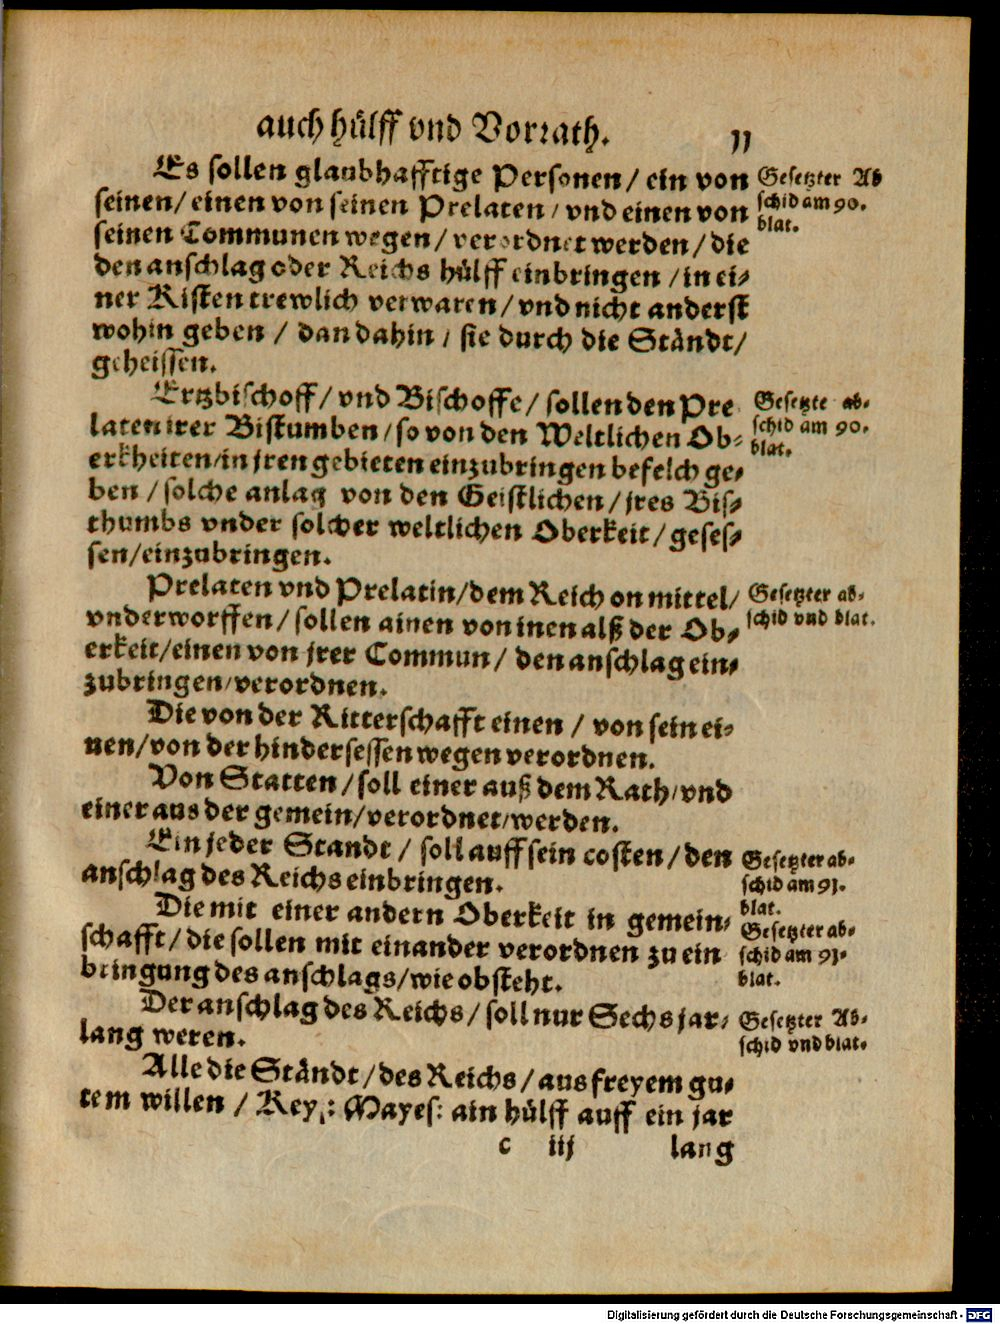 auch hülff vnd Vorrath. 11
Es sollen glaubhafftige Personen / ein von
seinen / einen von seinen Prelaten / vnd einen von
seinen Communen wegen / verordnet werden / die
den anschlag oder Reichs hülff einbringen / in ei-
ner Kisten trewlich verwaren / vnd nicht anderst
wohin geben / dan dahin / sie durch die Ständt /
geheissen.
Gesetzter Ab
schid am 90.
blat.
Ertzbischoff / vnd Bischoffe / sollen den Pre
laten irer Bistumben / so von den Weltlichen Ob-
erkheiten / in jren gebieten einzubringen befelch ge-
ben / solche anlag von den Geistlichen / jres Bis-
thumbs vnder solcher weltlichen Oberkeit / geses-
sen / einzubringen.
Gesetzte ab-
schid am 90.
blat.
Prelaten vnd Prelatin / dem Reich on mittel /
vnderworffen / sollen ainen von inen alß der Ob-
erkeit / einen von jrer Commun / den anschlag ein-
zubringen / verordnen.
Gesetzter ab-
schid vnd blat.
Die von der Ritterschafft einen / von sein ei-
nen / von der hindersessen wegen verordnen.
Von Statten / soll einer auß dem Rath / vnd
einer aus der gemein / verordnet / werden.
Ein jeder Standt / soll auff sein costen / den
anschlag des Reichs einbringen.
Gesetzter ab-
schid am 91.
blat.
Die mit einer andern Oberkeit in gemein-
schafft / die sollen mit einander verordnen zu ein
bringung des anschlags / wie obsteht.
Gesetzter ab-
schid am 91.
blat.
Der anschlag des Reichs / soll nur Sechs jar-
lang weren.
Gesetzter Ab-
schid vnd blat.
Alle die Ständt / des Reichs / aus freyem gu-
tem willen / Key: Mayes: ain hülff auff ein jar
c iij lang
Digitalisierung gefördert durch die Deutsche Forschungsgemeinschaft - DFG